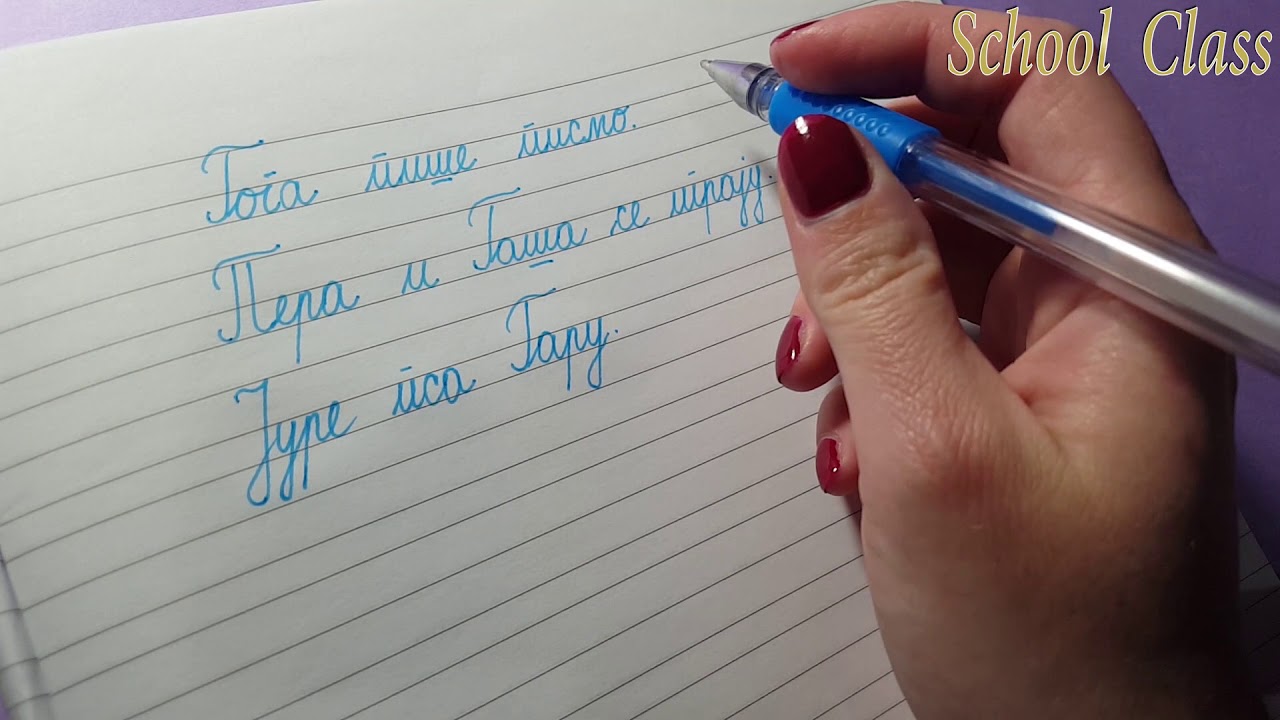 School Class
Гога пише писмо.
Пера и Гаша се играју.
Јуре пса Гару.